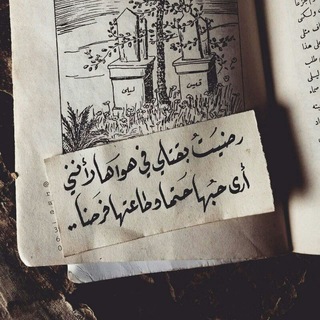 ليلى
قيس
رضيت بقتلي في هواها لأنني
أرى حبها حتما وطاعتها فرضا..